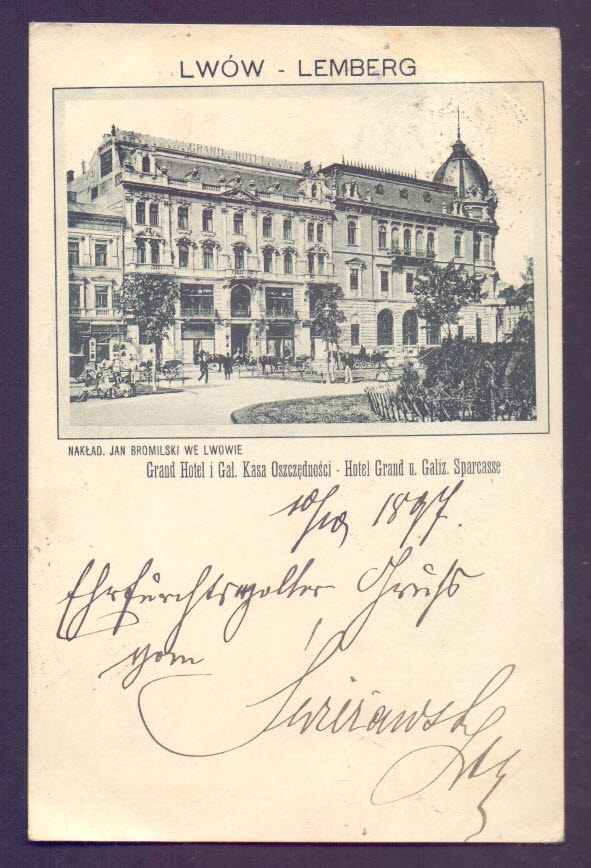 LWÓW - LEMBERG
GRAND HOTEL
NAKŁAD. JAN BROMILSKI WE LWOWIE
Graud Hotel i Gal. Kasa Oszczędności - Hotel Grand u. Galiz. Sparcasse
1897.
Ehrfurchtsvoller Gruß
vom